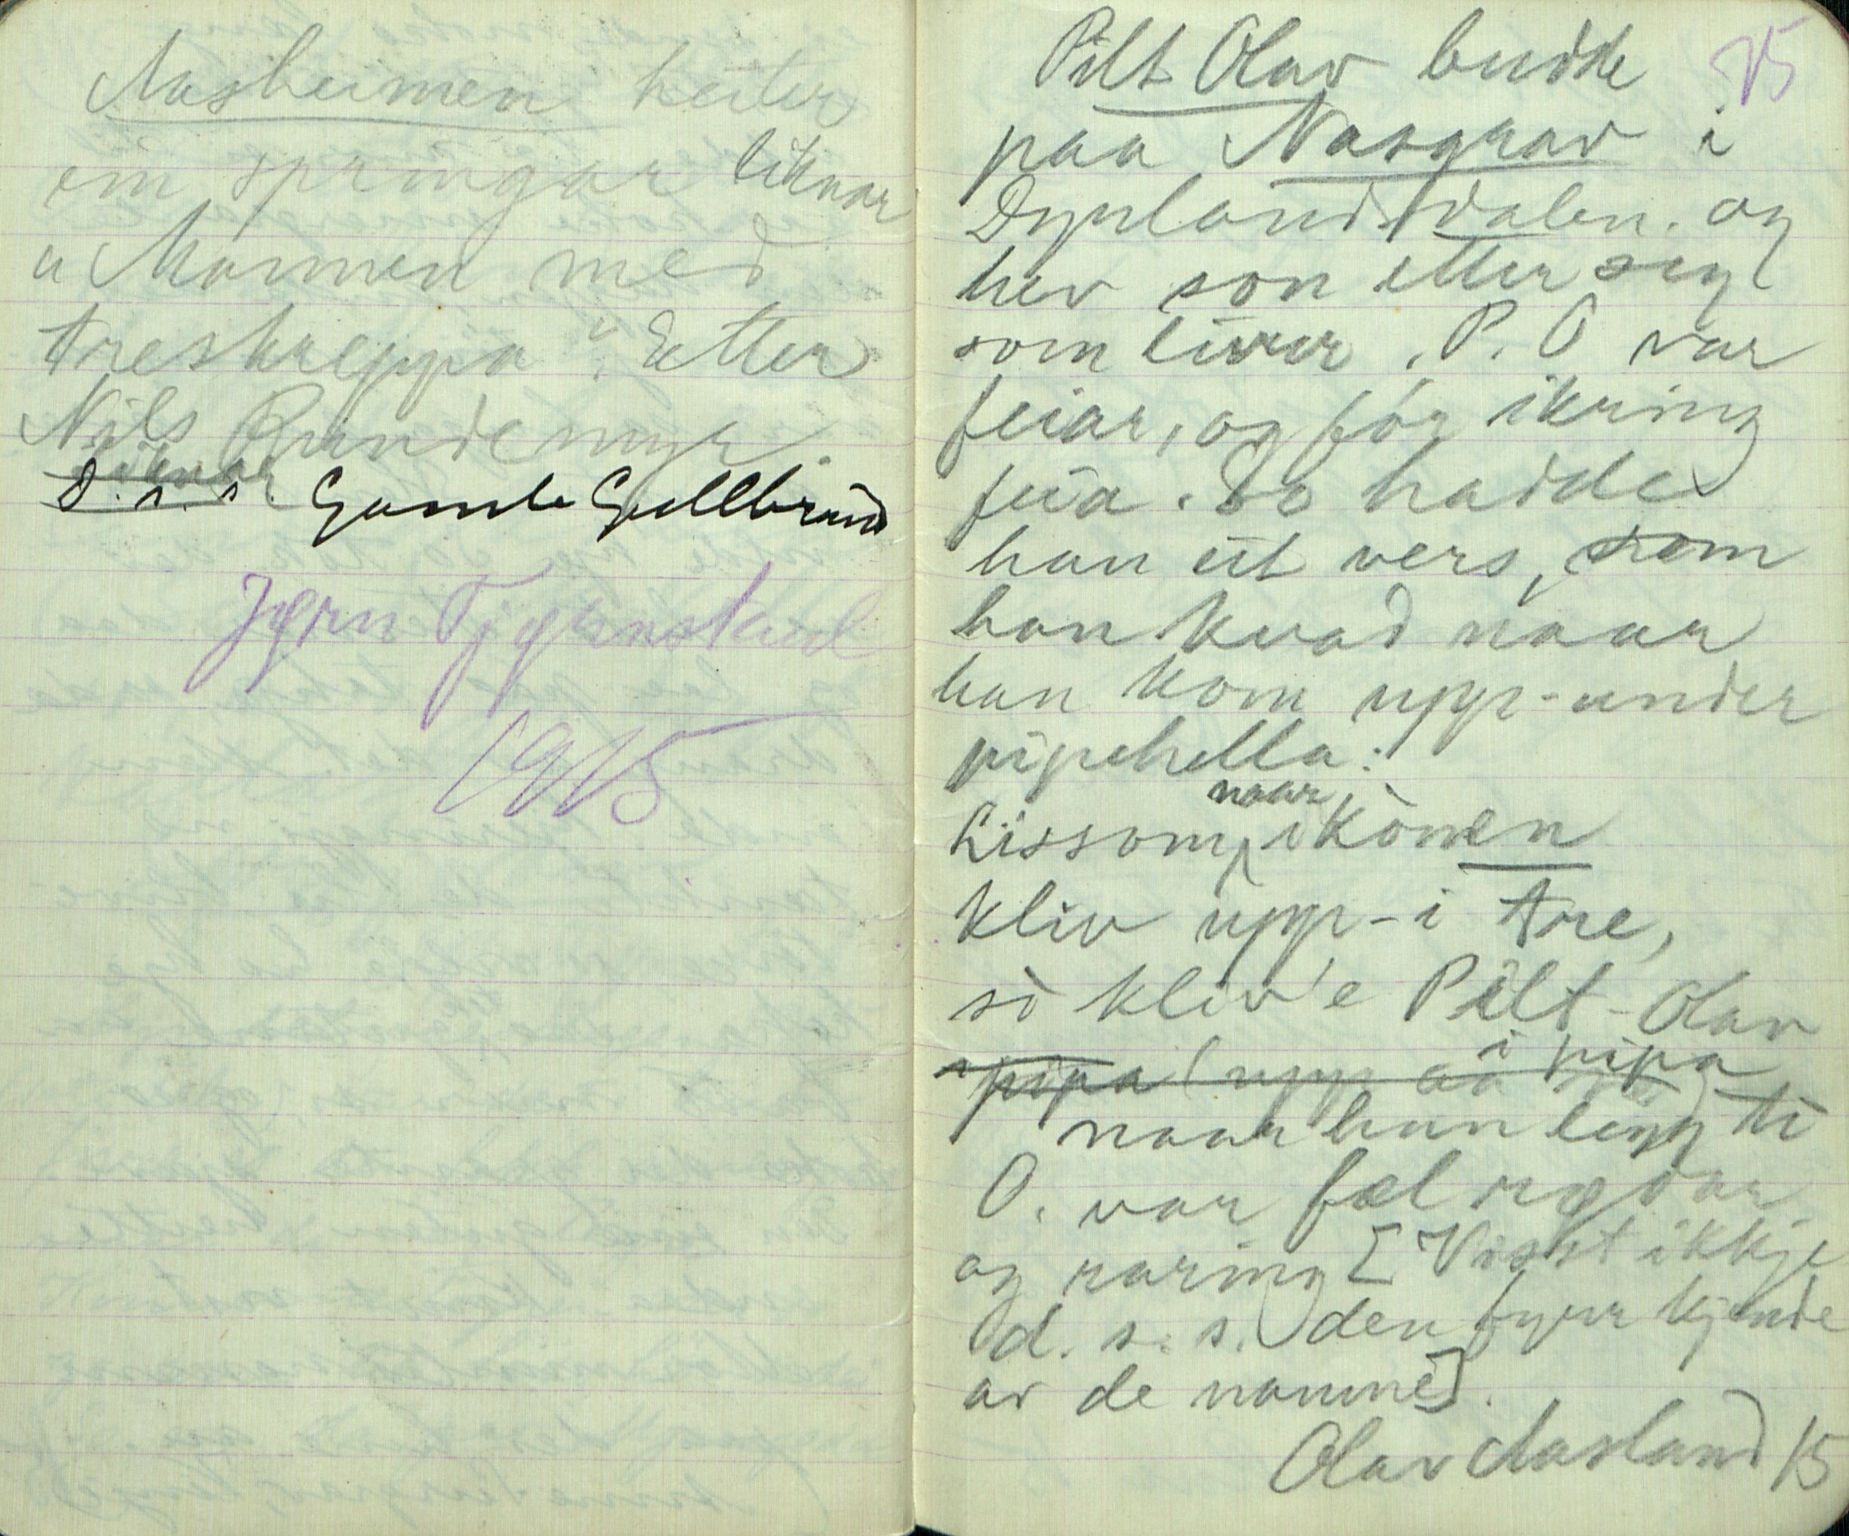 Aasheimen heiter
ein springar liknar
"Mannen med
treskreppa". Etter
Nils Rundemyr.
liknar
d. s. s. Gamle Gullbrand
Jørn Tjønnstaul
1915
75
Pilt Olav budde
paa Nasgrav i
Dynlandsdalen. og
hev son etter seg
som liver. P. O var
feiar, og fór ikring
feia. So hadde
han eit vers, som
han kvad naar
han kom upp-under
pipehella:
Lissom naar ikònnen
kliv upp-i tre,
sò kliv'e Pilt-Olav
pipa (upp aa i pipa
naar han ti
O. var fæl
og raring [Visst ikkje
d. s. s. den fyrr kjende
av de namne].
Olav Aasland 15